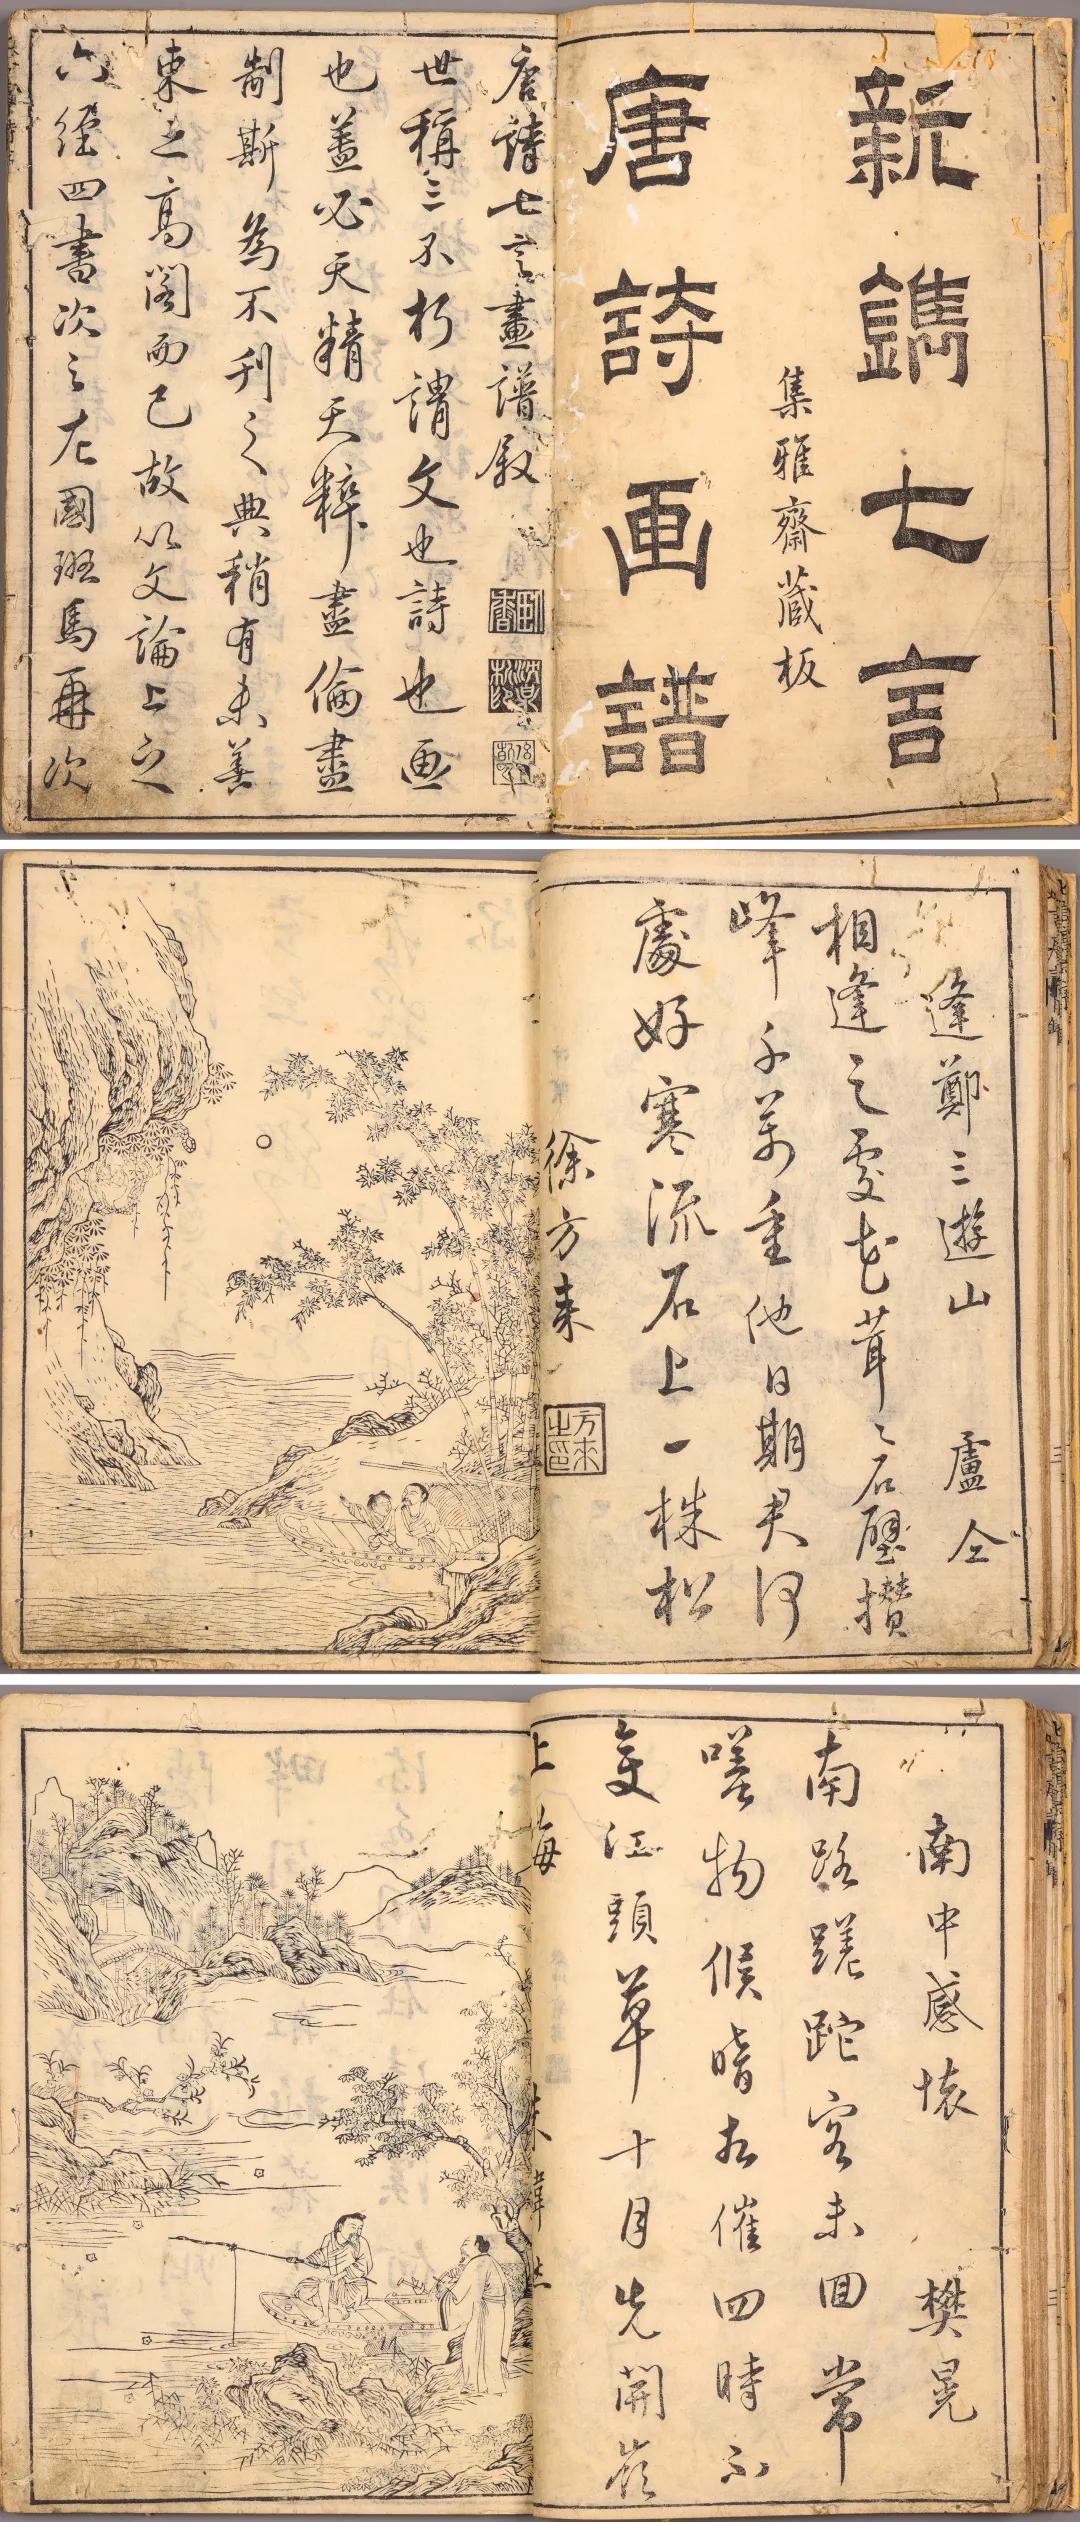 新鐫七言
集雅齋藏板
唐詩画譜
唐詩七言畫譜叙
世稱三不朽謂文也詩也画
也蓋必天精天粹盡倫盡
制斯為不刊之典稍有未善
束之高閣而已故以文論上之
六經四書次之左國班馬再次
逢鄭三遊山 盧仝
相逢之處花茸々石壁攢
峰千萬重他日期君何
處好寒流石上一株松
徐方来
方来之印
南中感懷 樊晃
南路蹉跎客未回常
嗟物候暗相催四時不
變江頭草十月先開嶺
上梅